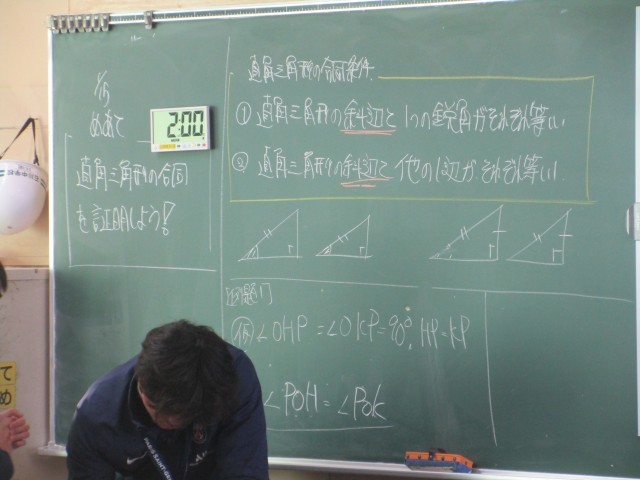 めあて
直角三角形の合同
を証明しよう!
2:00
直角三角形の合同条件
① 直角三角形の斜辺と1つの鋭角がそれぞれ等しい
② 直角三角形の斜辺と他の1辺がそれぞれ等しい
問題1
㋕ ∠OHP=∠OKP=90°, HP=KP
∠POH=∠POK
て
め